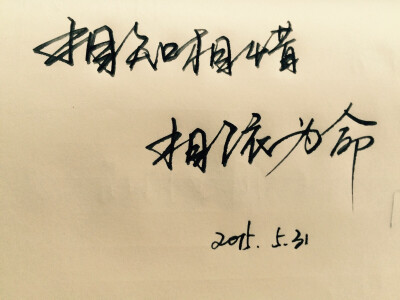 相知相惜
相依为命
2015.5.31